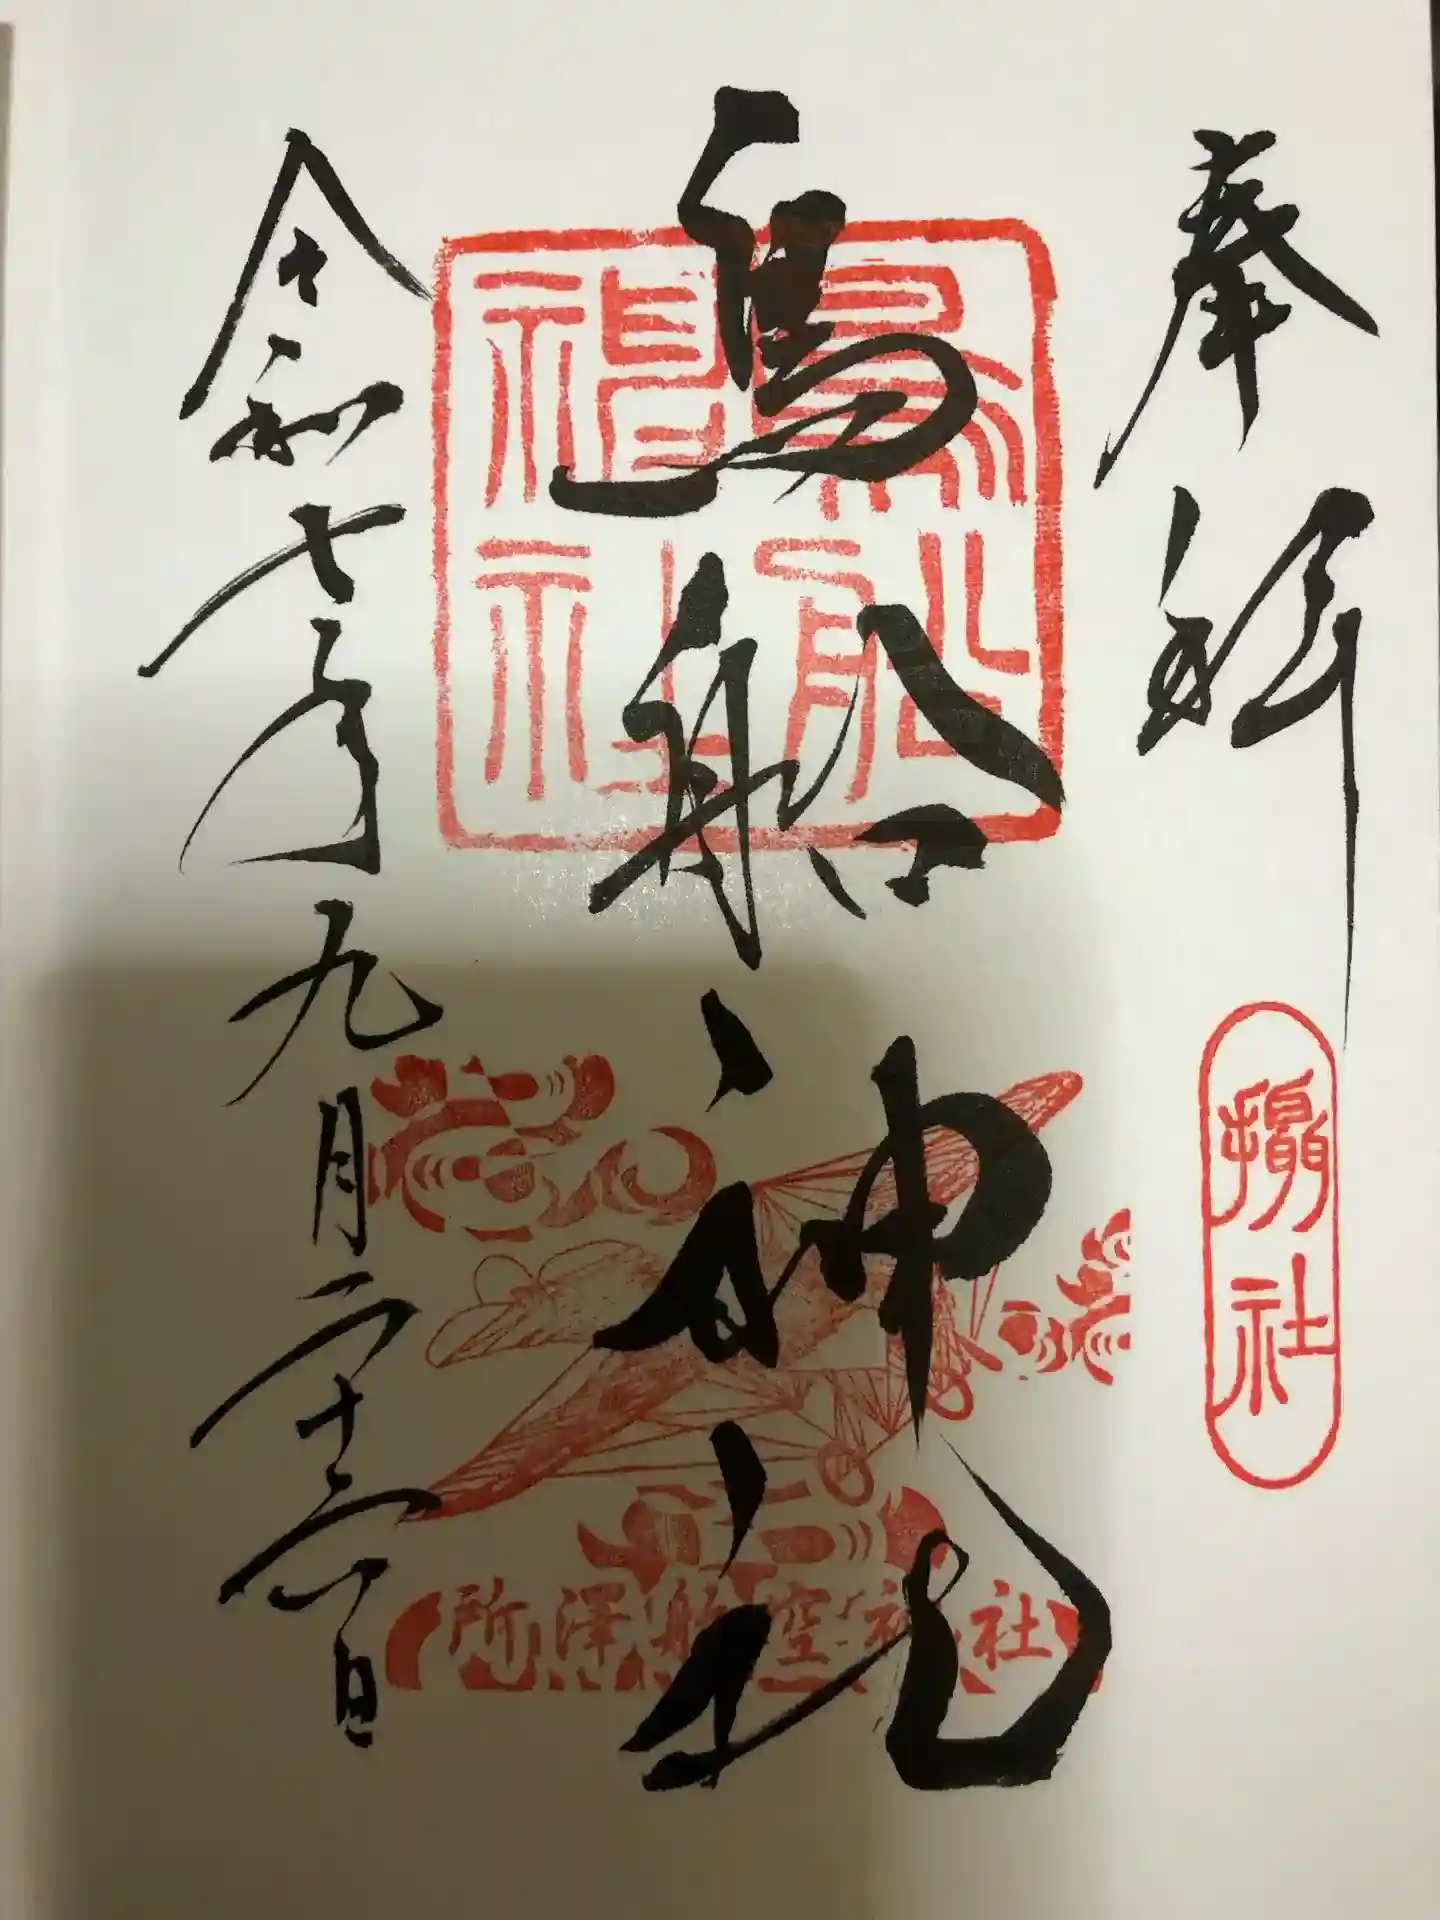 奉拝
攝社
鳥船神社
鳥船
神社
所澤航空神社
令和七年九月二十三日